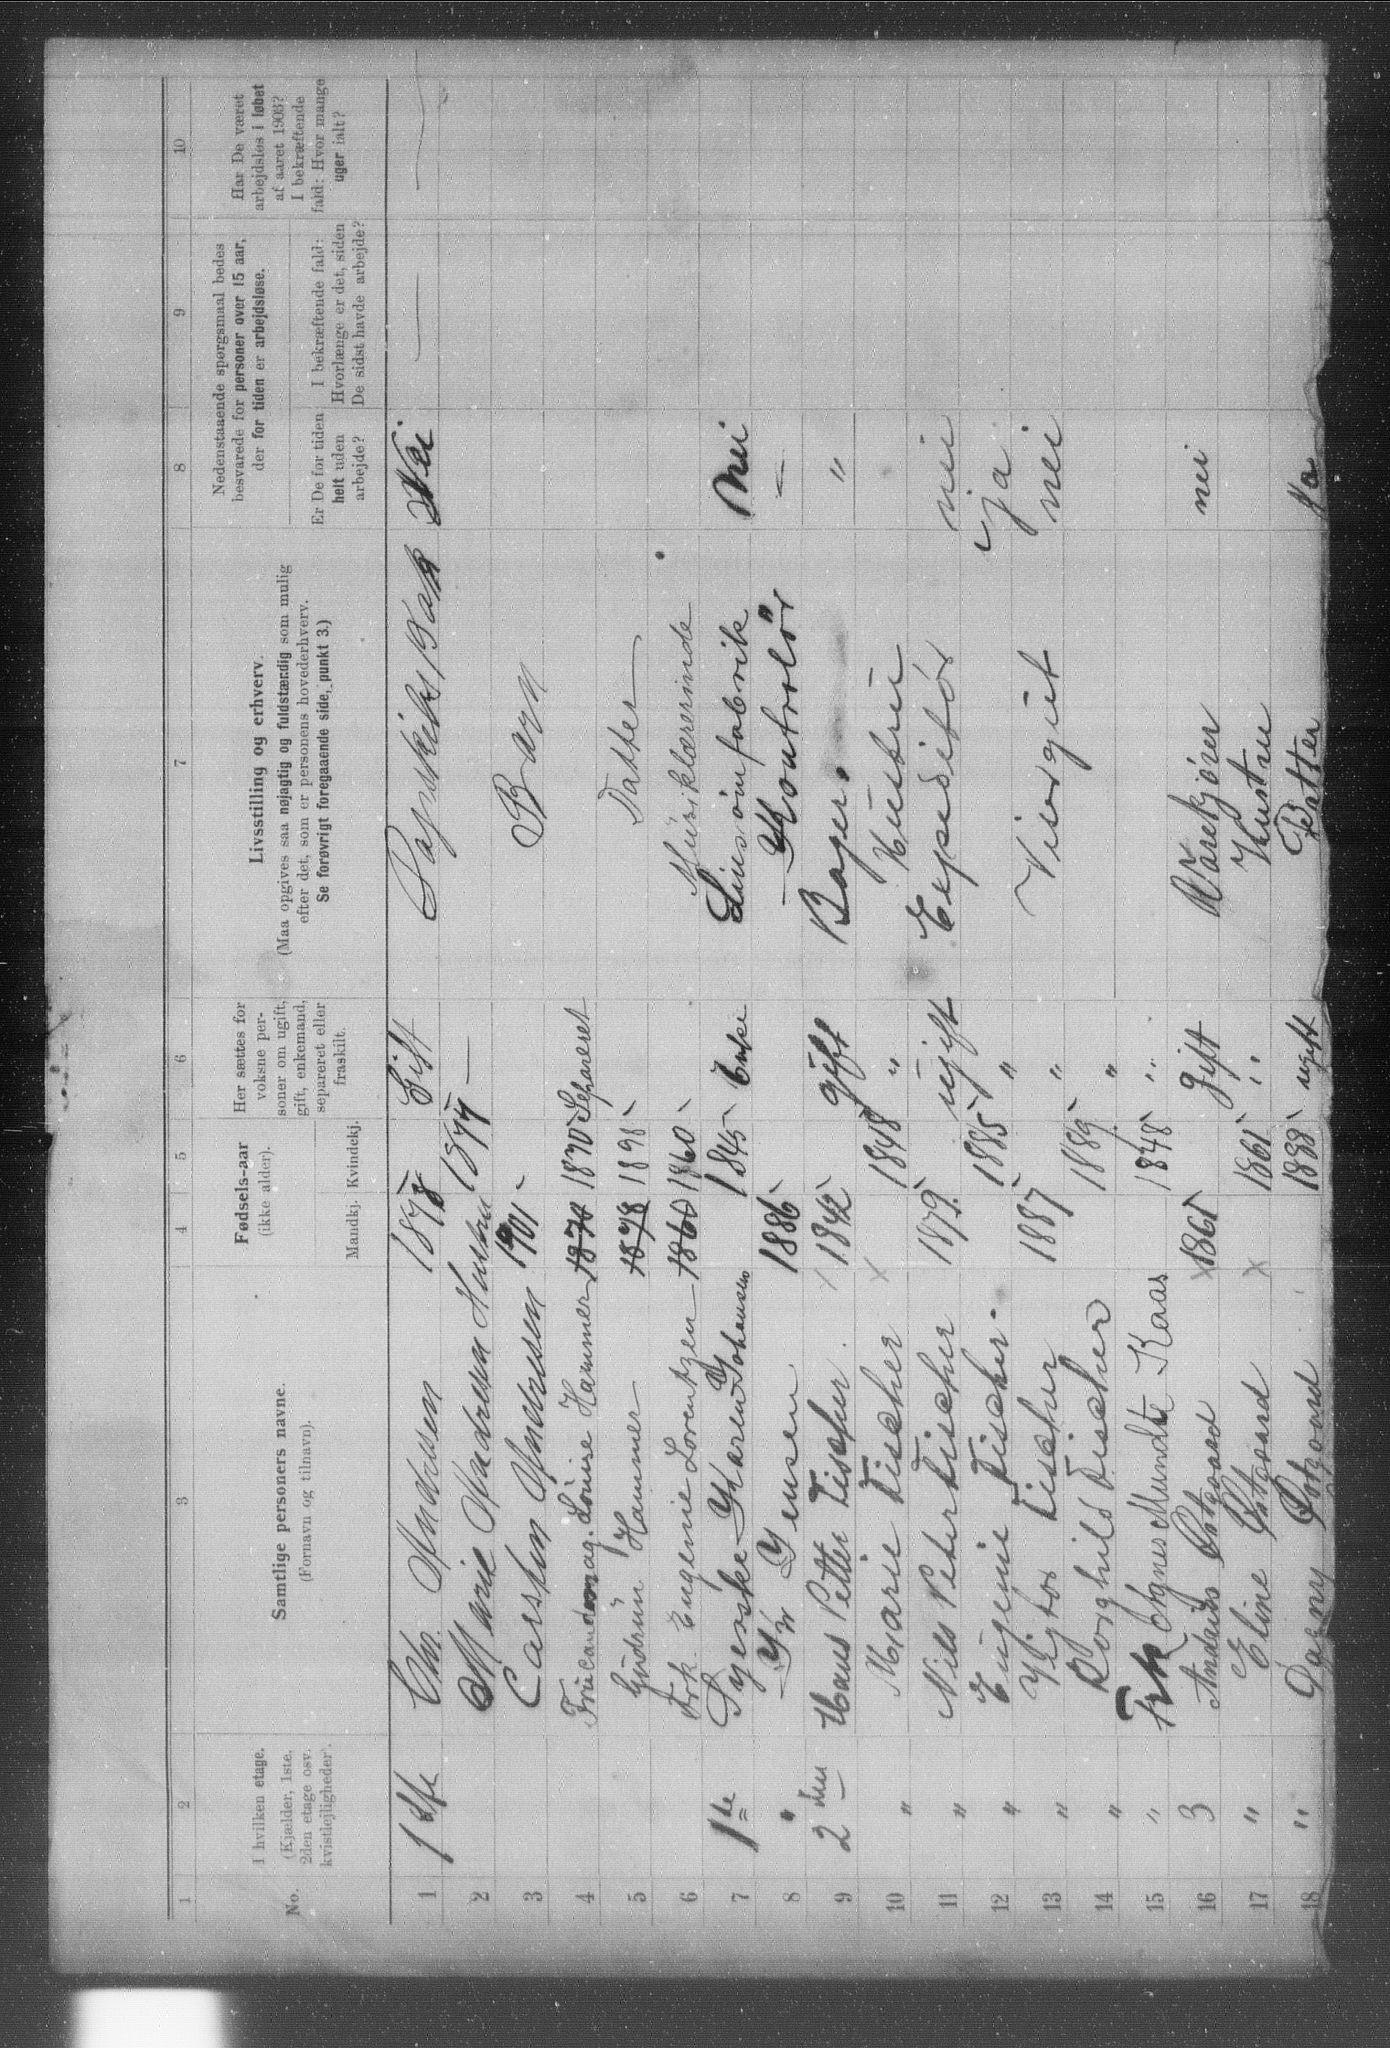 1 2 3 4 5 6 7 8 9 10
No.
I hvilken etage.
(Kjælder, 1ste.
2den etage osv.
kvistlejligheder).
Samtlige personers navne.
(Fornavn og tilnavn).
Fødsels-aar
(ikke alder).
Mandkj. Kvindekj.
Her sættes for
voksne per-
soner om ugift,
gift, enkemand,
separeret eller
fraskilt.
Livsstilling og erhverv.
(Maa opgives saa nøjagtig og fuldstændig som mulig
efter det, som er personens hovederhverv.
Se forøvrigt foregaaende side, punkt 3.)
Nedenstaaende spørgsmaal bedes
besvarede for personer over 15 aar,
der for tiden er arbejdsløse.
Er De for tiden
helt uden
arbejde?
I bekræftende fald:
Hvorlænge er det, siden
De sidst havde arbejde?
Har De været
arbejdsløs i løbet
af aaret 1903?
I bekræftende
fald: Hvor mange
uger ialt?
1 1ste Chr. Andresen 1875 Gift Nei — —
2 Marie Andresen Hustru 1877 —
3 Carsten Andresen 1901 Barn
4 Louise Hammer 1870 1870 Separeret
5 Gudrun Hammer 1898 1898 Datter
6 Frk. Eugenie Lorentzen 1860 1860 Musiklærerinde
7 1ste Karen Johansen 1845 Enke nei
8 " Jensen 1886 Kontrolør —
9 2den Hans Petter Fischer 1842 gift Bager. "
10 " Marie Fischer 1848 " Hustru
11 " Nils Peter Fischer 1879 ugift Expeditør nei
12 " Eugenie Fischer 1885 " ja
13 " Viktor Fischer 1887 " Visergut nei
14 " Borghild Fischer 1889 "
15 " Frk Agnes Munthe Kaas 1848 "
16 3 Andreas Østgaard 1861 gift Varekjører nei
17 " Eline Østgaard 1861 " Hustru
18 " Dagny Østgaard 1888 ugift Datter Ja